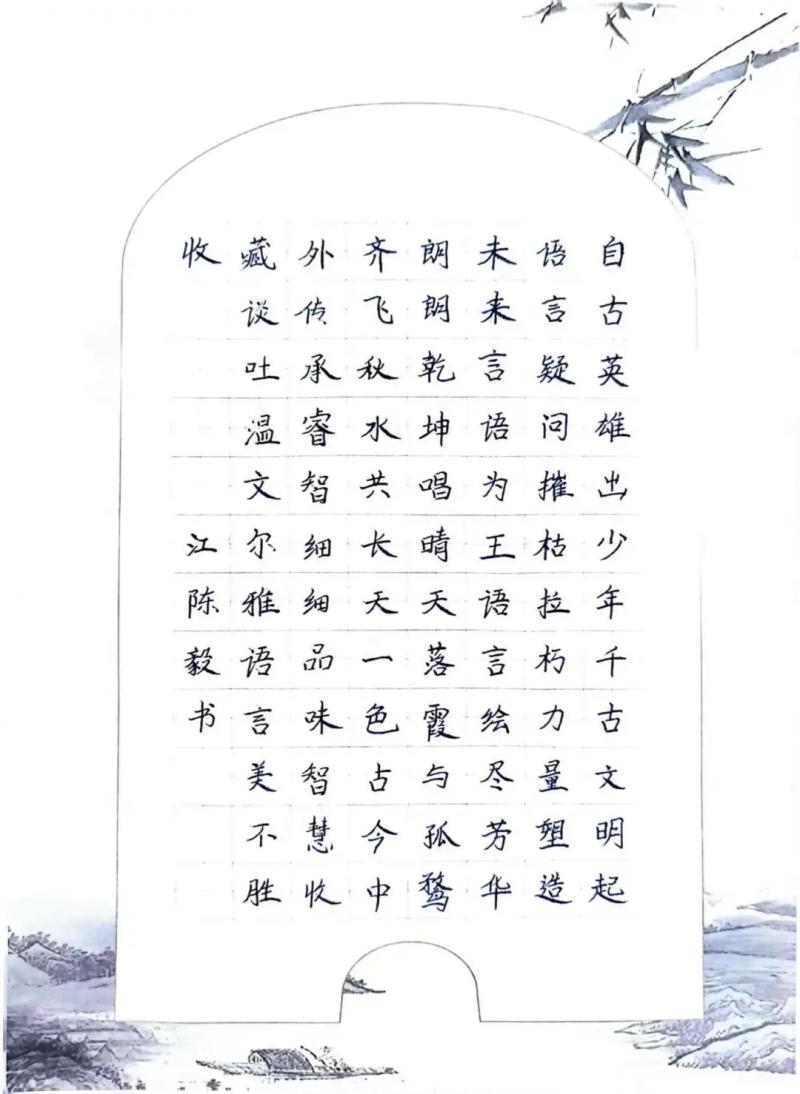 自古英雄出少年千古文明起
语言疑问摧枯拉朽力量塑造
未来言语为王语言绘尽芳华
朗朗乾坤唱晴天落霞与孤鹜
齐飞秋水共长天一色古今中
外传承睿智细细品味智慧收
藏谈吐温文尔雅语言美不胜
收
江陈毅书